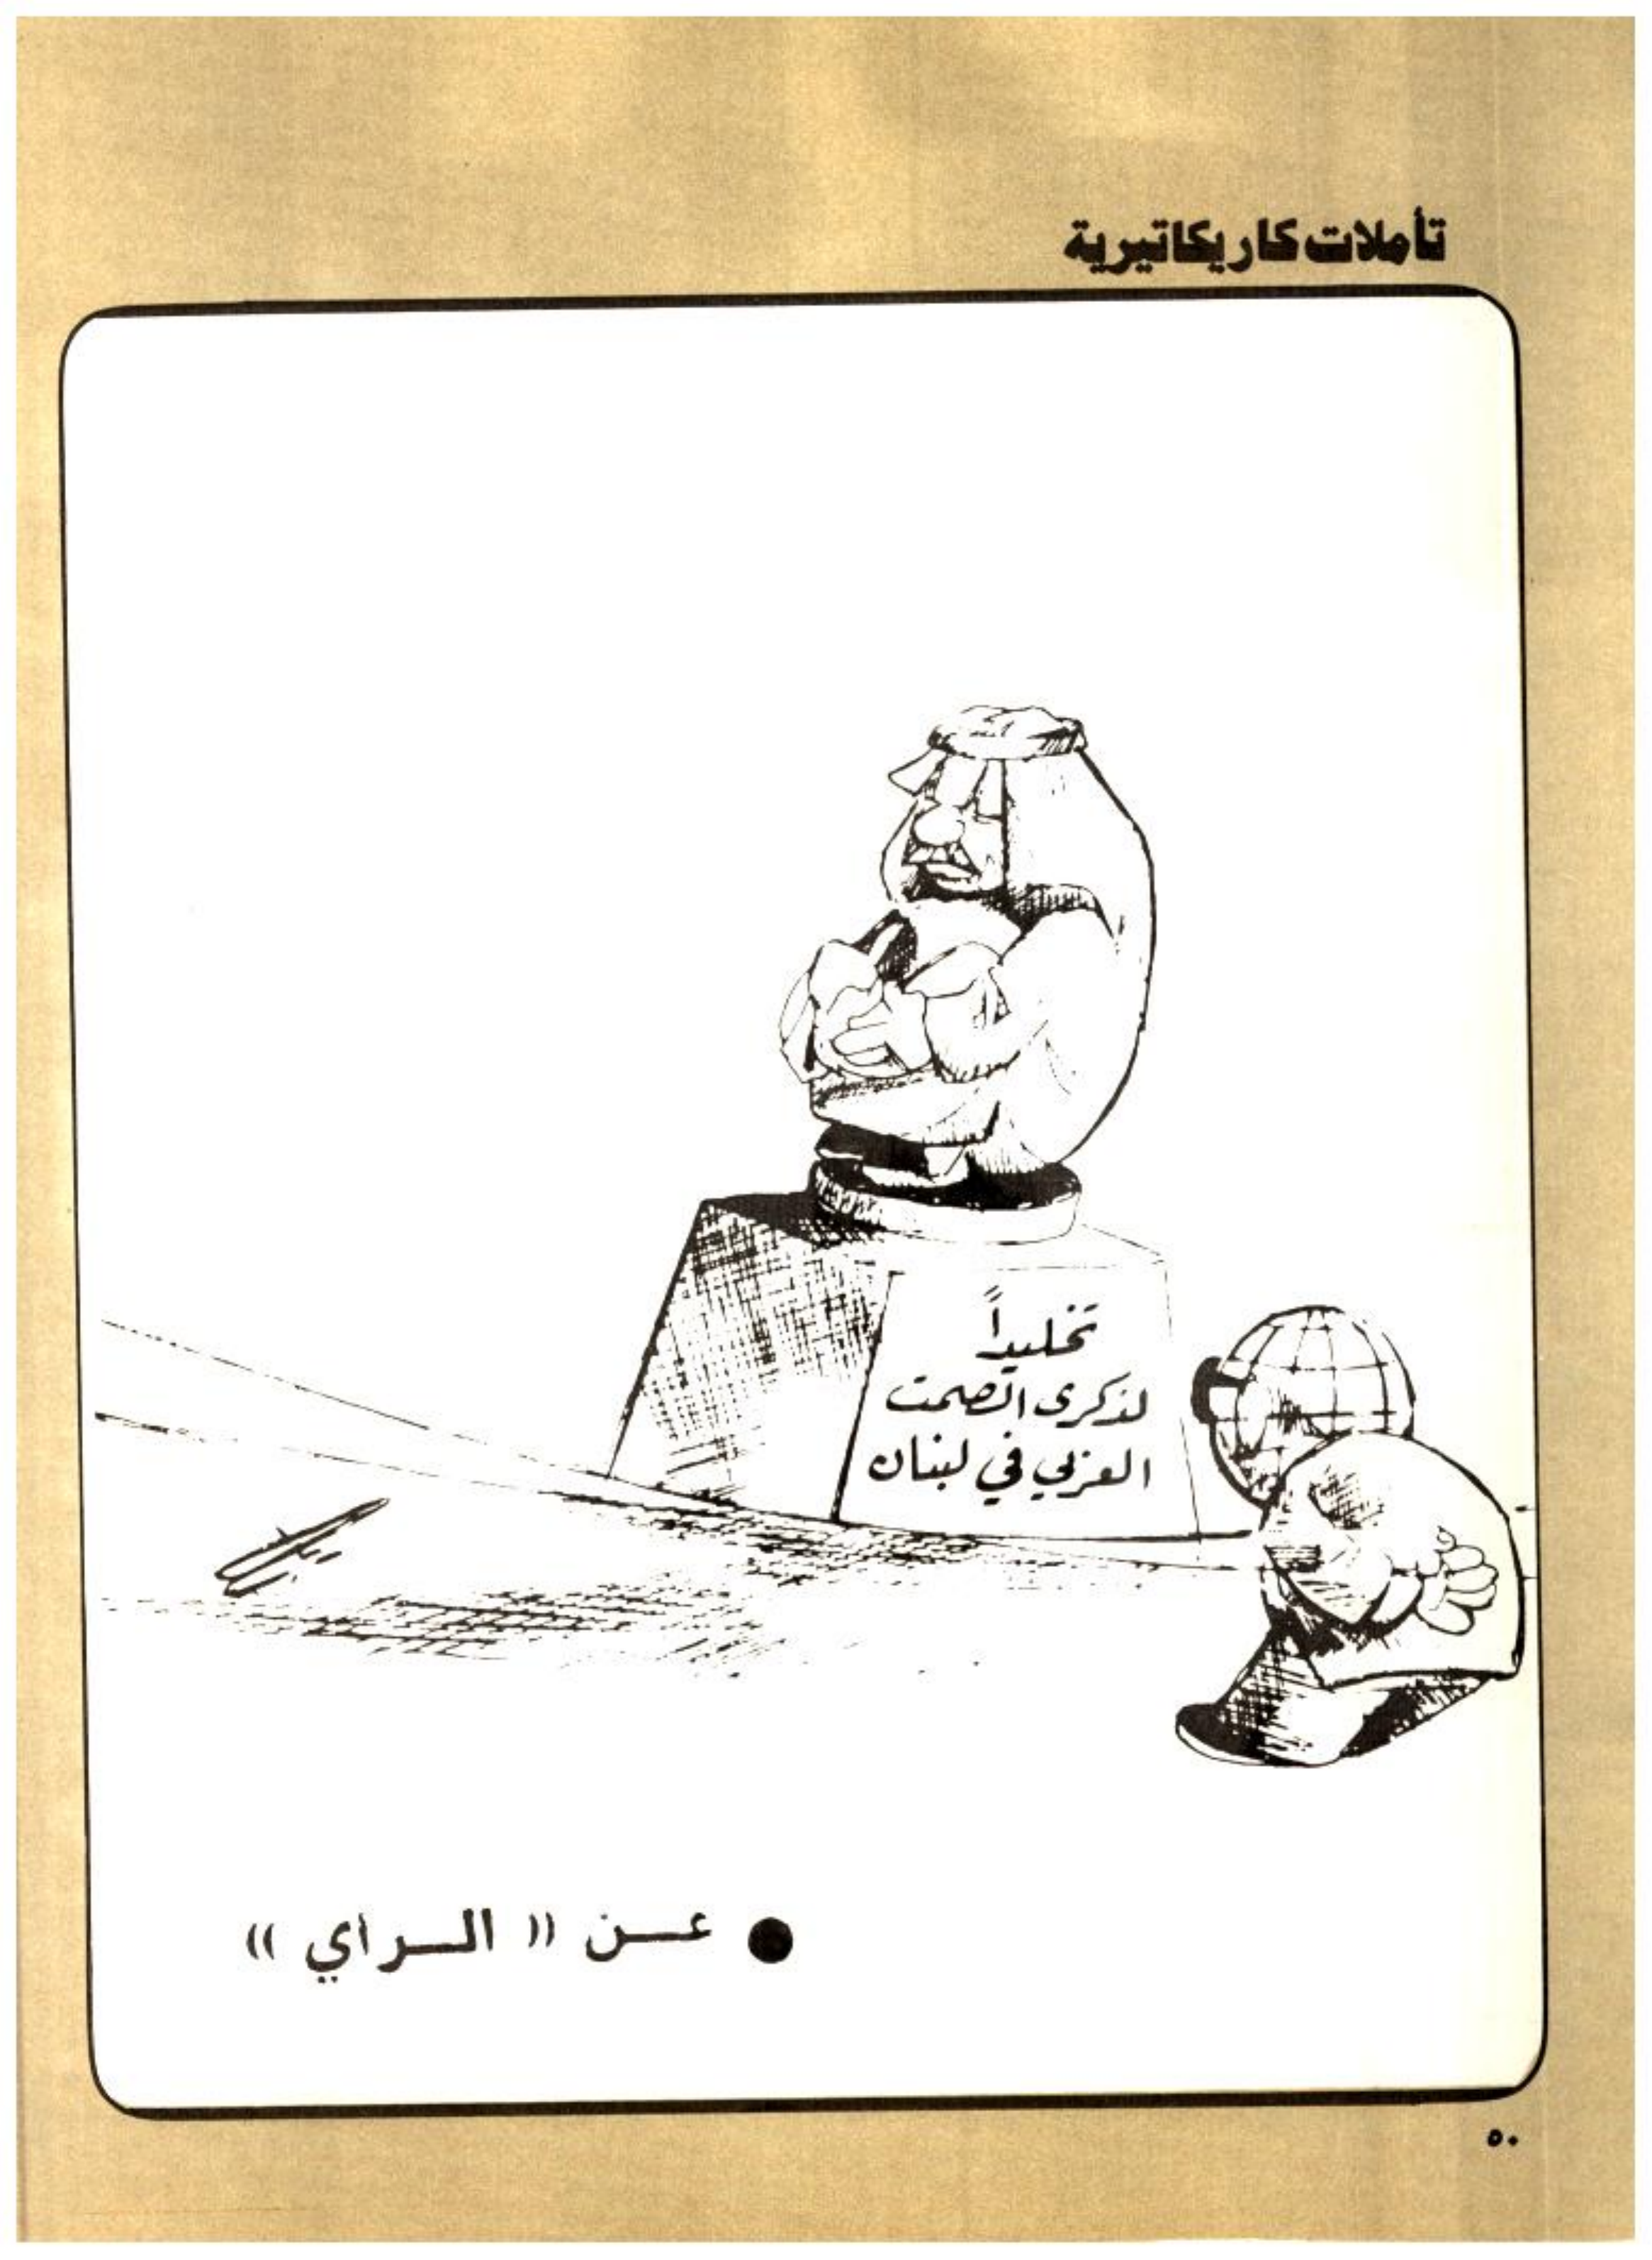 تأملات كاريكاتيرية
تخليداً
لذكرى الصمت
العربي في لبنان
● عــن « الــرأي »
٥٠